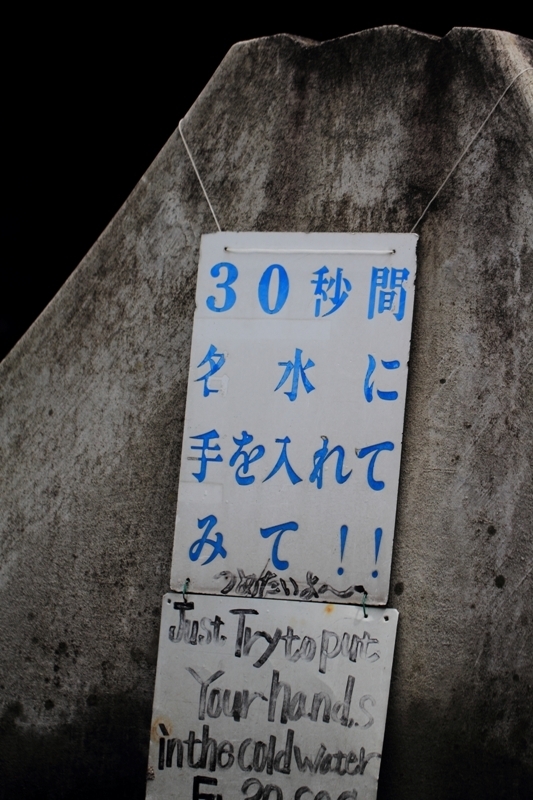 30秒間
名水に
手を入れて
みて!!
つめたいよ〜
Just Try to put
Your hands
in the cold water
30 sec